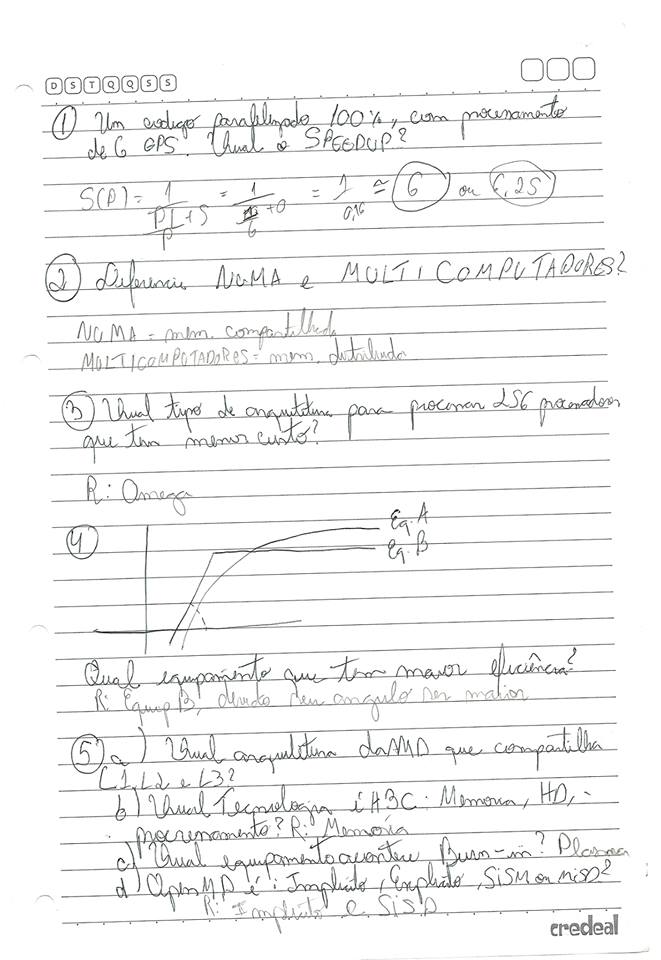 D S T Q Q S S
① Um codigo paralelizado 100%, com processamento
de 6 EPS. Qual o SPEEDUP?
S(P) = 1 / (P1/P + S) = 1 / (1/6 + 0) = 1 / 0,16 ≅ 6 ou 6,25
② Diferencie NUMA e MULTICOMPUTADORES?
NUMA = mem. compartilhada
MULTICOMPUTADORES = mem. distribuida
③ Qual tipo de arquitetura para processar 256 processadores
que tem menor custo?
R: Omega
④
Eq. A
Eq. B
Qual equipamento que tem maior eficiência?
R: Equip B, devido seu angulo ser maior
⑤ a) Qual arquitetura da AMD que compartilha
L1, L2 e L3?
b) Qual Tecnologia é H3C: Memoria, HD,
processamento? R: Memoria
c) Qual equipamento acontece Burn-in? Plasma
d) OpenMP é: Implicito, Explicito, SiSM ou MiSD?
R: Implicito e SiSD
credeal